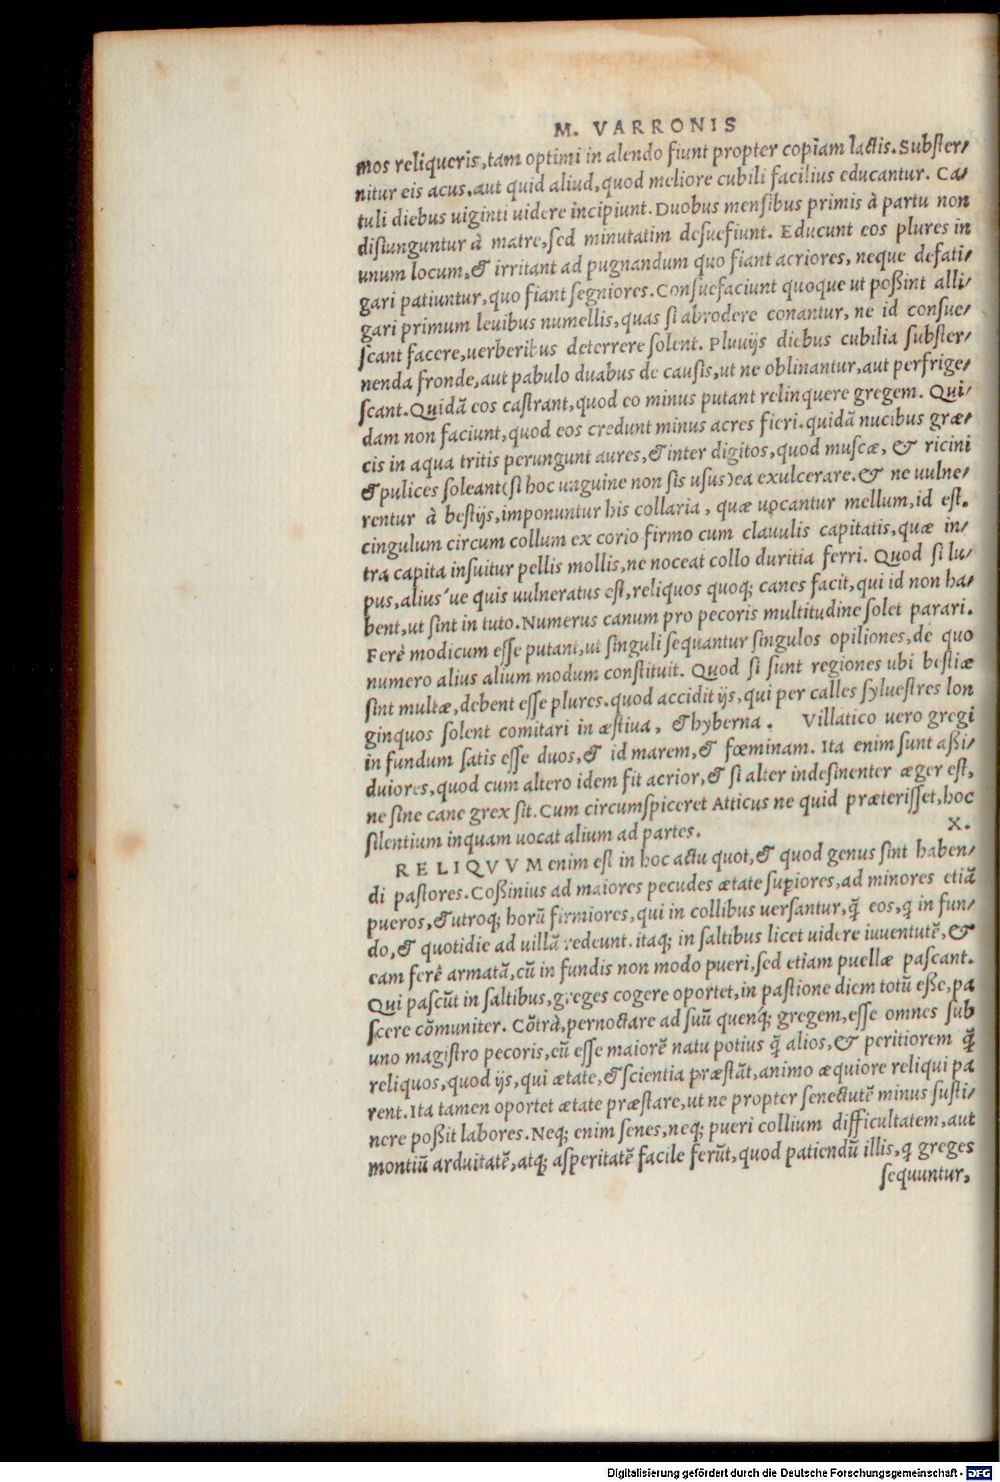 M. VARRONIS
mos reliqueris, tam optimi in alendo fiunt propter copiam lactis. Subster/
nitur eis acus, aut quid aliud, quod meliore cubili facilius educantur. Ca/
tuli diebus uiginti uidere incipiunt. Duobus mensibus primis à partu non
disiunguntur à matre, sed minutatim desuefiunt. Educunt eos plures in
unum locum, & irritant ad pugnandum quo fiant acriores, neque defati/
gari patiuntur, quo fiant segniores. Consuefaciunt quoque ut possint alli/
gari primum leuibus numellis, quas si abrodere conantur, ne id consue/
scant facere, uerberibus deterrere solent. Pluuijs diebus cubilia subster/
nenda fronde, aut pabulo duabus de causis, ut ne oblinantur, aut perfrige/
scant. Quidã eos castrant, quod eo minus putant relinquere gregem. Qui/
dam non faciunt, quod eos credunt minus acres fieri. quidã nucibus græ/
cis in aqua tritis perungunt aures, & inter digitos, quod muscæ, & ricini
& pulices soleant (si hoc unguine non sis usus) ea exulcerare. & ne uulne/
rentur à bestijs, imponuntur his collaria, quæ uocantur mellum, id est.
cingulum circum collum ex corio firmo cum clauulis capitatis, quæ in/
tra capita insuitur pellis mollis, ne noceat collo duritia ferri. Quod si lu/
pus, alius´ue quis uulneratus est, reliquos quoq; canes facit, qui id non ha/
bent, ut sint in tuto. Numerus canum pro pecoris multitudine solet parari.
Ferè modicum esse putant, ut singuli sequantur singulos opiliones, de quo
numero alius alium modum constituit. Quod si sunt regiones ubi bestiæ
sint multæ, debent esse plures. quod accidit ijs, qui per calles syluestres lon
ginquos solent comitari in æstiua, & hyberna. Villatico uero gregi
in fundum satis esse duos, & id marem, & fœminam. Ita enim sunt assi/
duiores, quod cum altero idem fit acrior, & si alter indesinenter æger est,
ne sine cane grex sit. Cum circumspiceret Atticus ne quid præterisset, hoc
silentium inquam uocat alium ad partes. X.
RELIQVVM enim est in hoc actu quot, & quod genus sint haben/
di pastores. Cossinius ad maiores pecudes ætate supiores, ad minores etiã
pueros, & utroq; horũ firmiores, qui in collibus uersantur, q̃ eos, q in fun/
do, & quotidie ad uillã redeunt. itaq; in saltibus licet uidere iuuentutẽ, &
eam ferè armatã, cũ in fundis non modo pueri, sed etiam puellæ pascant.
Qui pascũt in saltibus, greges cogere oportet, in pastione diem totũ esse, pa
scere cõmuniter. Cõtrà, pernoctare ad suũ quenq; gregem, esse omnes sub
uno magistro pecoris, eũ esse maiorẽ natu potius q̃ alios, & peritiorem q̃
reliquos, quod ijs, qui ætate, & scientia præstãt, animo æquiore reliqui pa
rent. Ita tamen oportet ætate præstare, ut ne propter senectutẽ minus susti/
nere possit labores. Neq; enim senes, neq; pueri collium difficultatem, aut
montiũ arduitatẽ, atq; asperitatẽ facile ferũt, quod patiendũ illis, q greges
sequuntur,
Digitalisierung gefördert durch die Deutsche Forschungsgemeinschaft - DFG